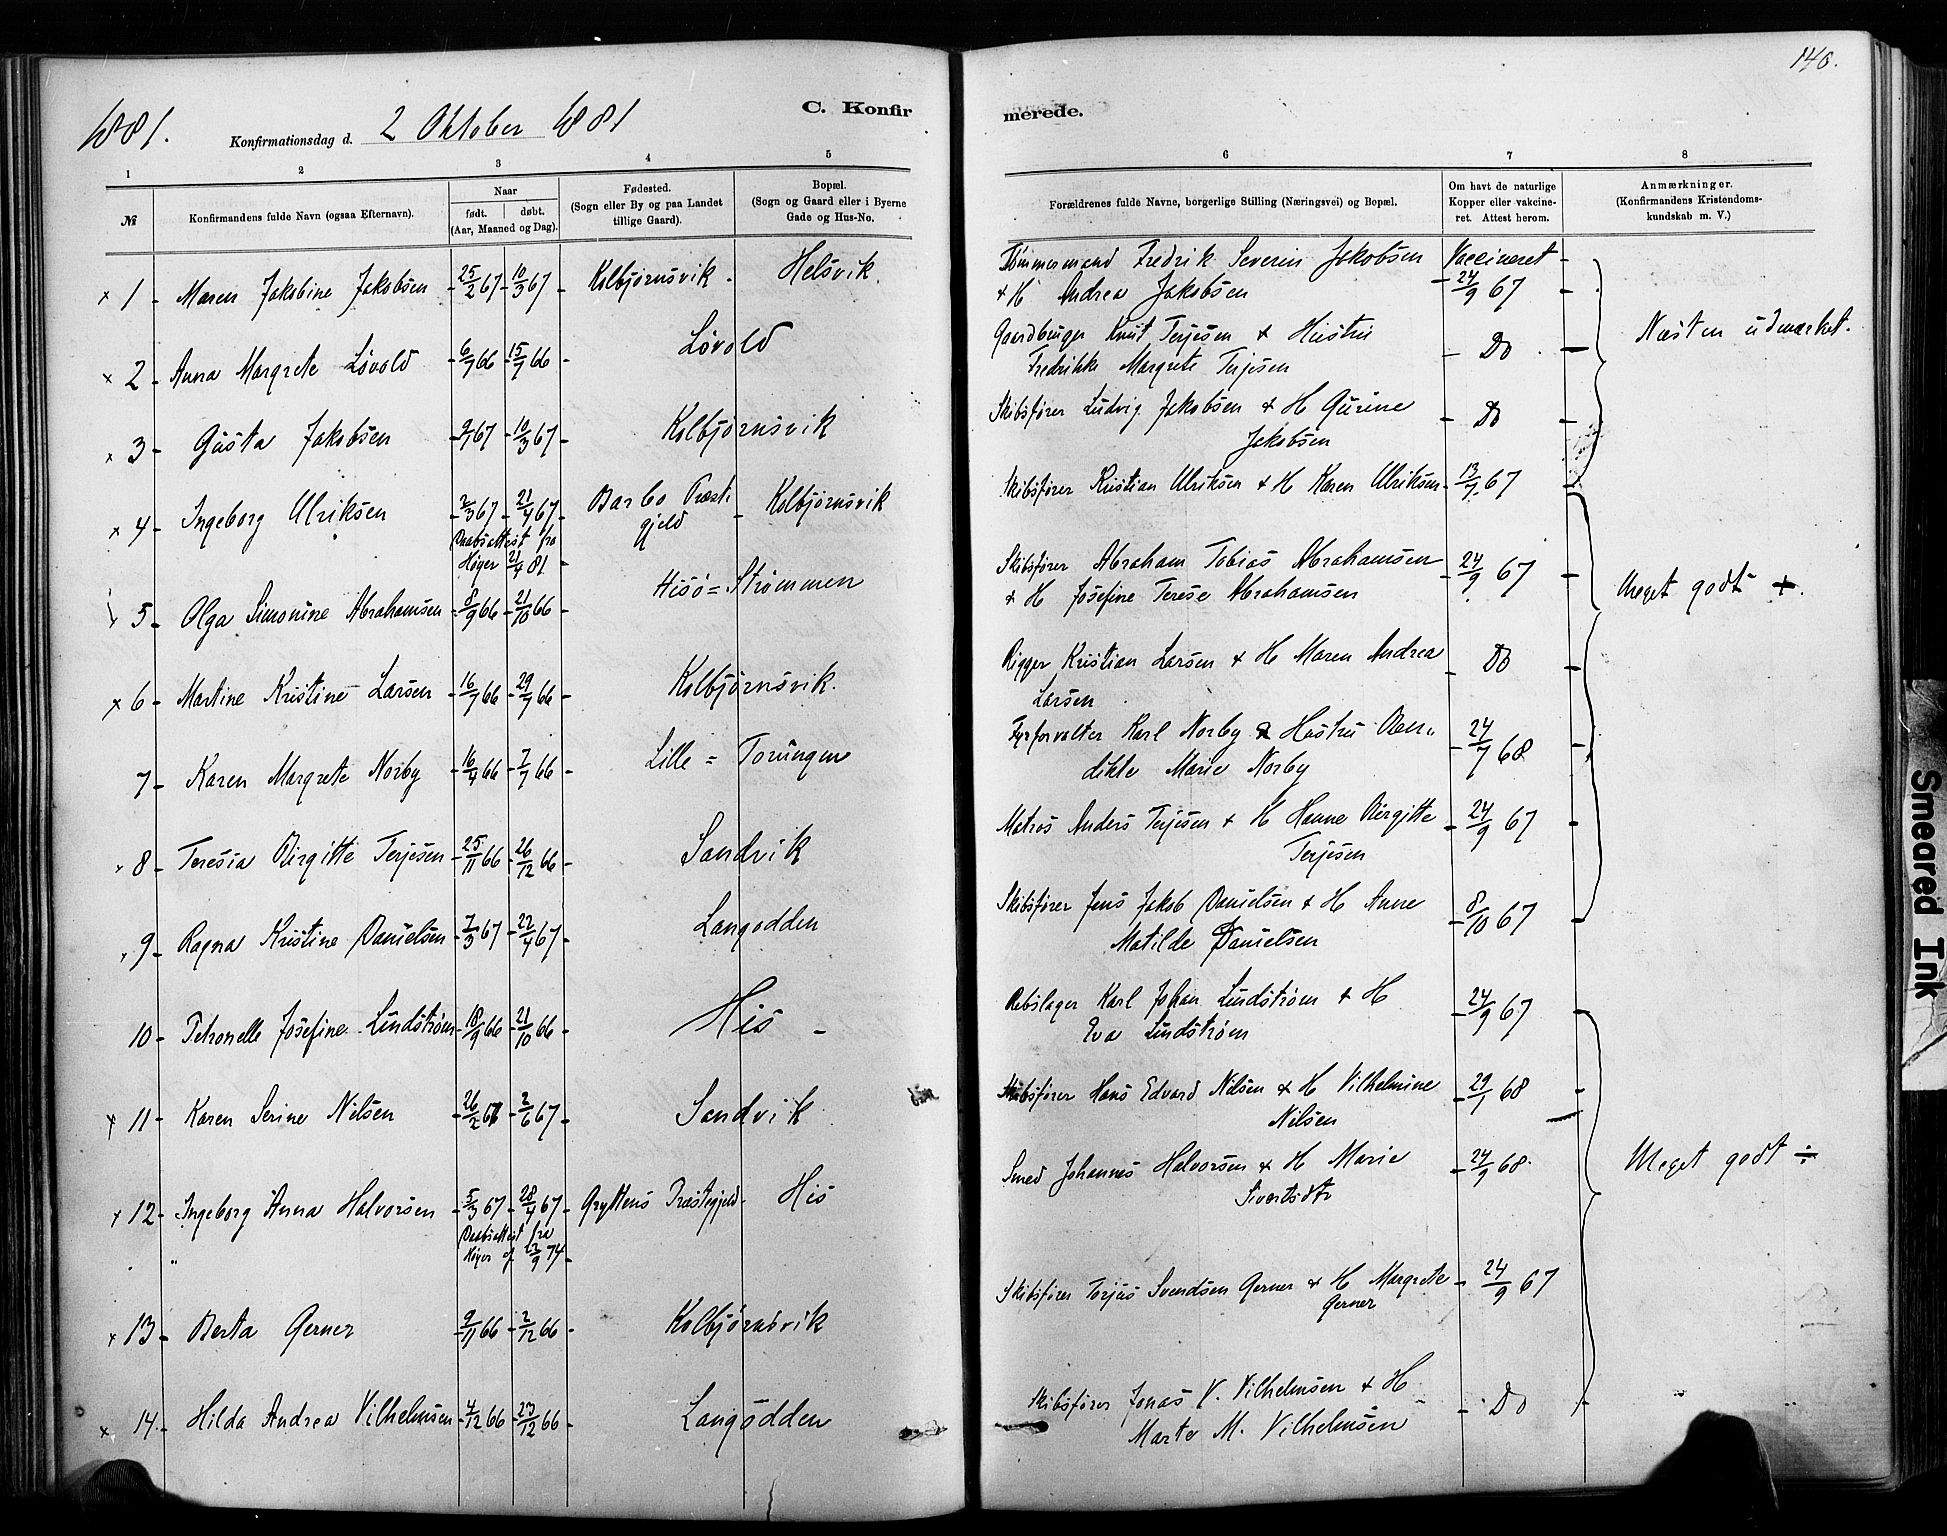 140.
1881.
Konfirmationsdag d. 2 Oktober 1881
C. Konfir
merede.
1 2 3 4 5 6 7 8
№
Konfirmandens fulde Navn (ogsaa Efternavn).
Naar
født. døbt.
(Aar, Maaned og Dag).
Fødested.
(Sogn eller By og paa Landet
tillige Gaard).
Bopæl.
(Sogn og Gaard eller i Byerne
Gade og Hus-No.
Forældrenes fulde Navne, borgerlige Stilling (Næringsvei) og Bopæl.
Om havt de naturlige
Kopper eller vakcine-
ret. Attest herom.
Anmærkninger.
(Konfirmandens Kristendoms-
kundskab m. V.)
x 1 - Maren Jakobine Jakobsen - 25/2 67 - 10/3 67 - Kolbjørnsvik - Helsvik.
Tømmermand Fredrik Severin Jakobsen Vaccineret -
+ H Andrea Jakobsen - 24/9 67 -
x 2 - Anna Margrete Løvold - 6/7 66 - 15/7 66 - Løvold
Gaardbruger Knut Terjesen + Hustru
Fredrikke Margrete Terjesen - Do -
Næsten udmærket.
x 3 - Gusta Jakobsen - 9/1 67 - 10/3 67 - Kolbjørnsvik
Skibsfører Ludvig Jakobsen + H Gurine
Jakobsen - Do -
x 4 - Ingeborg Ulriksen - 2/3 67 - 21/4 67 - Barbo Præste
gjeld - Kolbjørnsvik
Daabsattest fra
Høyer 21/4 81 -
Skibsfører Kristian Ulriksen + H Karen Ulriksen - 13/7 67 -
x 5 - Olga Simonine Abrahamsen - 8/9 66 - 21/10 66 - Hisø = Strømmen
Skibsfører Abraham Tobias Abrahamsen
+ H Josefine Terese Abrahamsen - 24/9 67 -
Meget godt +.
x 6 - Martine Kristine Larsen - 16/7 66 - 29/7 66 - Kolbjørnsvik.
Rigger Kristian Larsen + H Maren Andrea
Larsen - Do -
7 - Karen Margrete Norby - 16/4 66 - 7/7 66 - Lille = Torungen
Fyrforvalter Karl Norby & Hustru Ben„
dikte Marie Norby - 24/7 68 -
8 - Teresia Birgitte Terjesen - 25/11 66 - 26/12 66 - Sandvik
Matros Anders Terjesen + H Hanne Birgitte
Terjesen - 24/9 67 -
9 - Ragna Kristine Danielsen - 7/3 67 - 22/4 67 - Langodden
Skibsfører Jens Jakob Danielsen + H Anne
Matilde Danielsen - 8/10 67 -
10 - Petronelle Josefine Lindstrøm - 18/9 66 - 21/10 66 - His -
Rebslager Karl Johan Lindstrøm + H
Eva Lindstrøm - 24/9 67
x 11 - Karen Serine Nilsen - 26/2 67 - 2/6 67 - Sandvik
Skibsfører Hans Edvard Nilsen + H Vilhelmine
Nilsen - 29/1 68 -
x 12 - Ingeborg Anna Halvorsen - 5/3 67 - 28/4 67 - Gryttens Præstegjeld - His
Daabsattest fra
Høyer af 13/9 74 -
Smed Johannes Halvorsen + H Marie
Sivertsdtr - 24/9 68.
Meget godt ÷
x 13 - Berta Gerner - 9/11 66 - 2/12 66 - Kolbjørnsvik
Skibsfører Terjus Svendsen Gerner + H Margrete
Gerner - 24/9 67
x 14 - Hilda Andrea Vilhelmsen - 4/12 66 - 23/12 66 - Langodden
Skibsfører Jonas V. Vilhelmsen + H
Marte M. Vilhelmsen - Do
Smeared Ink